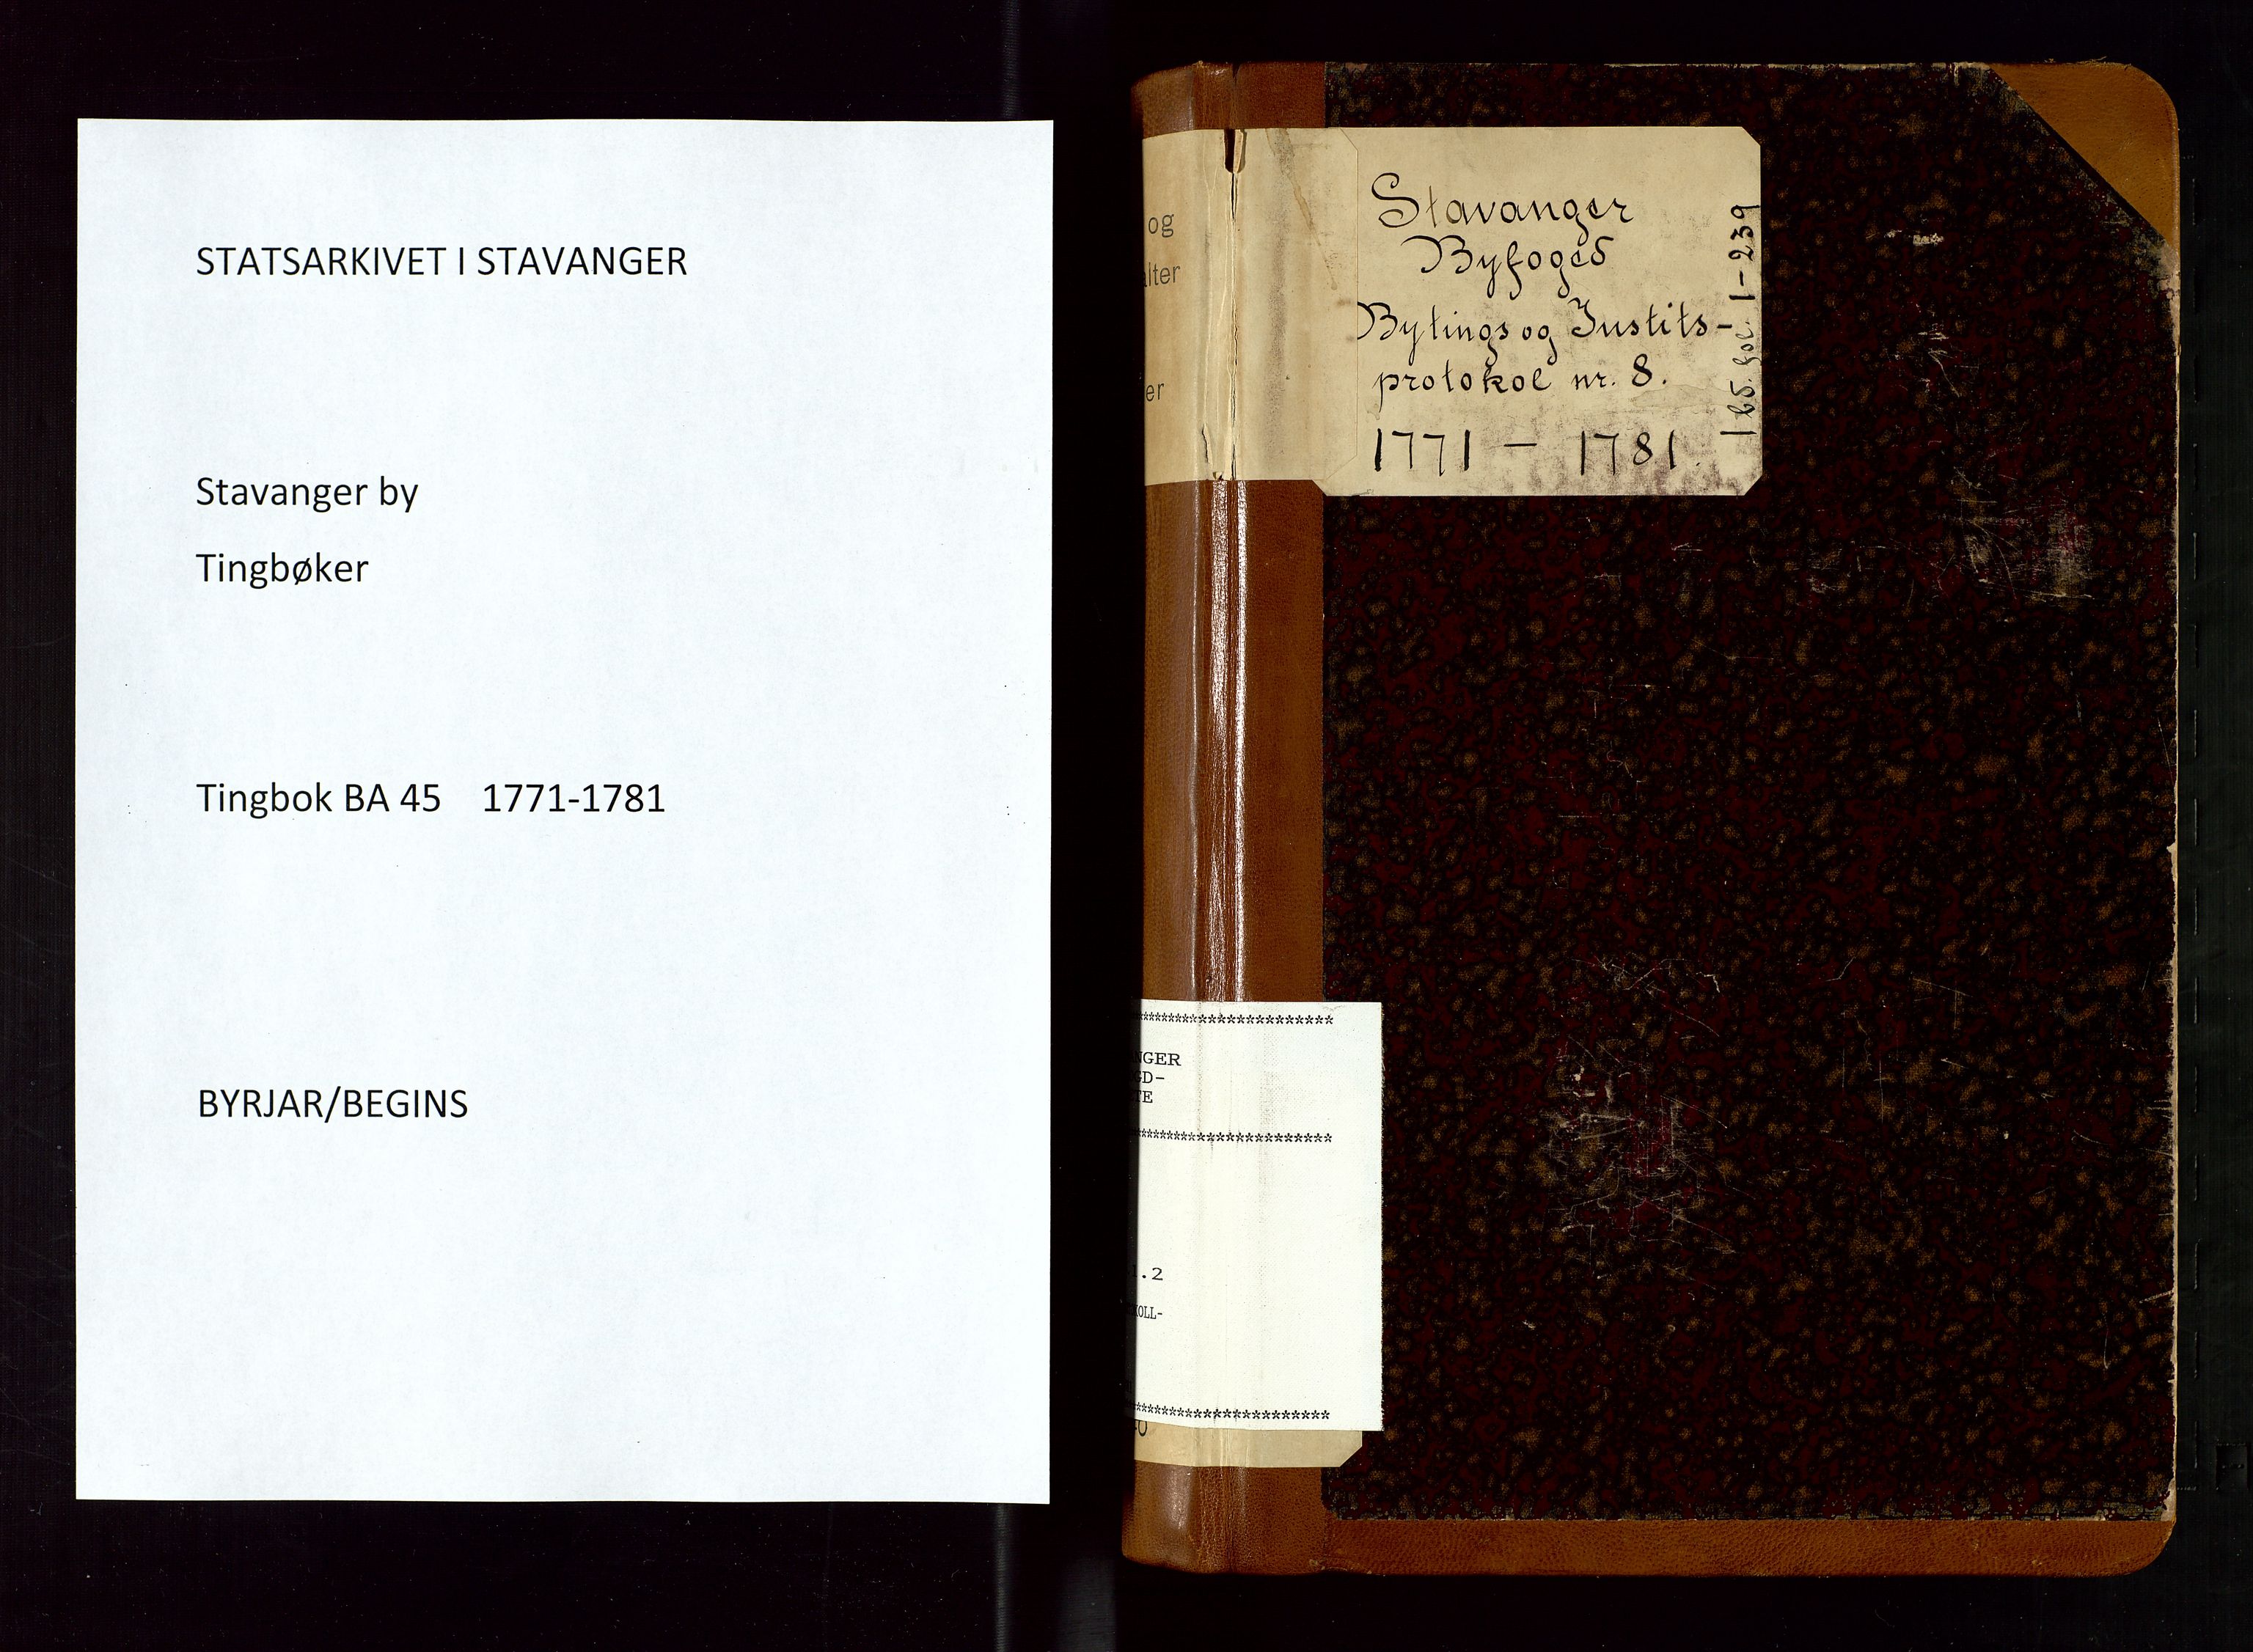 STATSARKIVET I STAVANGER
Stavanger by
Tingbøker
Tingbok BA 45 1771-1781
BYRJAR/BEGINS
og
er
Stavanger
Byfoged
Bytings og Justits-
protokol nr. 8.
1771 - 1781.
fol. 1-239
****************************
NGER
GD-
TE
****************************
.2
KOLL-
****************************